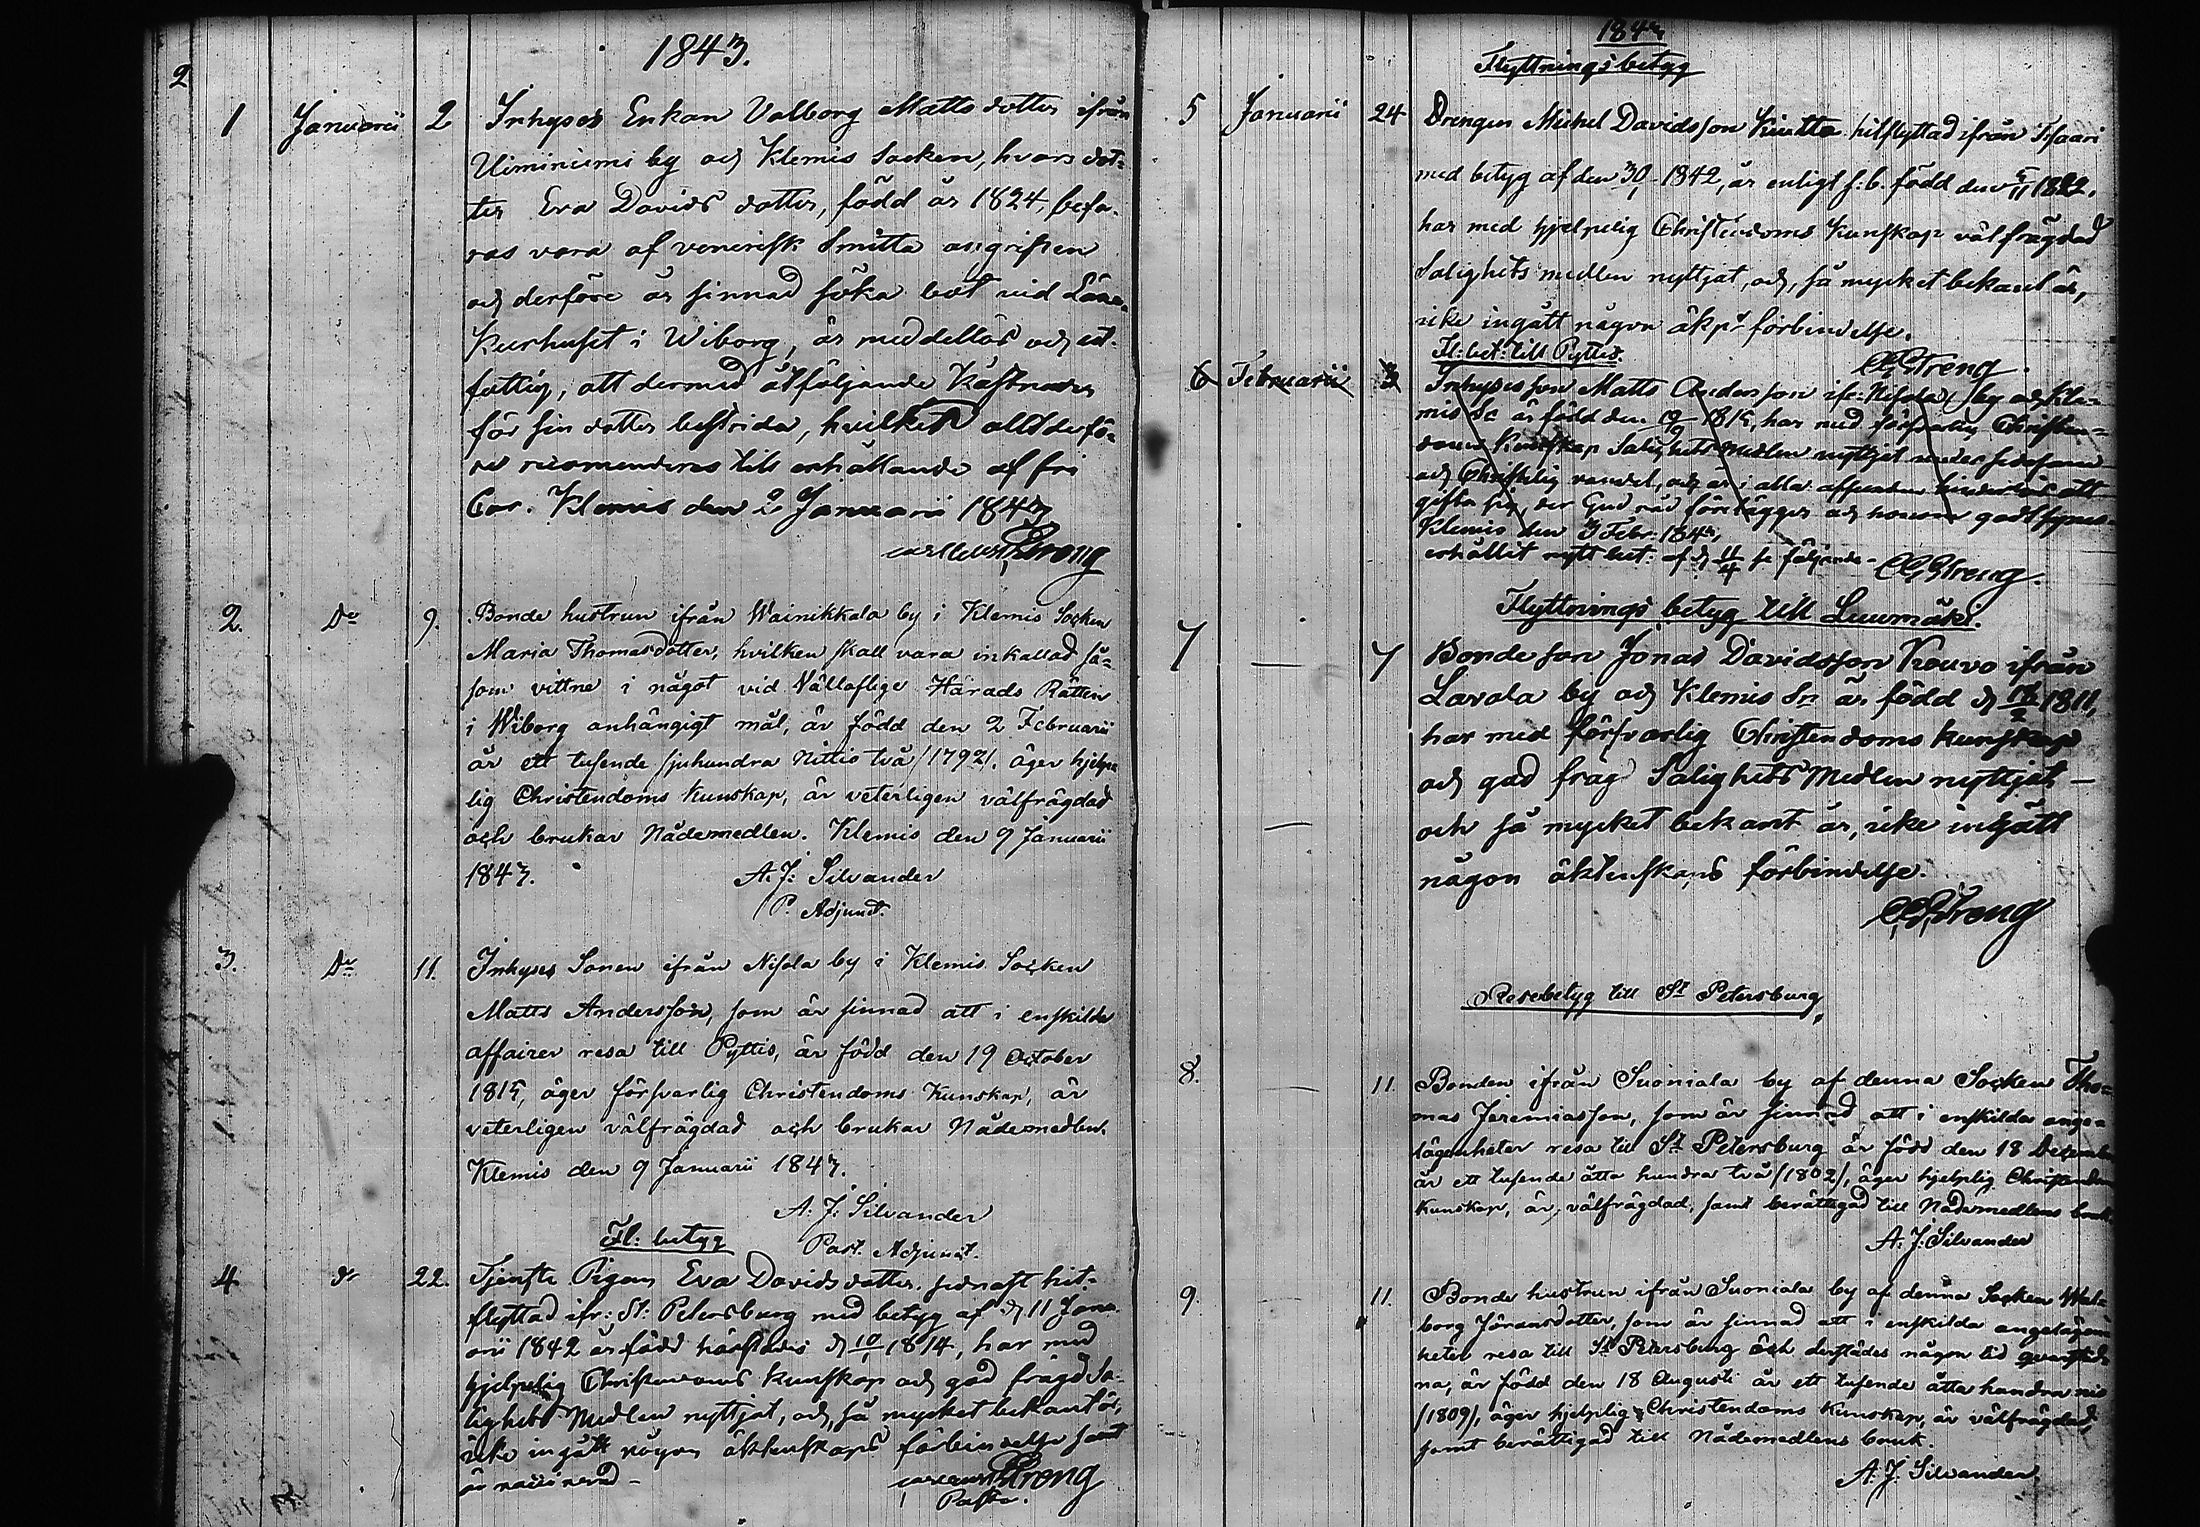 2
1843.
1 Januarii 2 Inhyses Enkan Valborg Matts dotter ifrån
Uiminiemi by och Klemis Socken, hvars dot-
ter Eva Davids dotter, född år 1824, befa-
ras vara af venerisk Smitta angripen
och derföre är sinnad söka bot vid Läns-
Kurhuset i Wiborg, är medellös och ut-
fattig, att dermed åtföljande Kostnader
för sin dotter bestrida, hvilket allt derfö-
re recomenderas till erhållande af fri
Cur. Klemis den 2 Januarii 1843
Streng
2. Do 9. Bonde hustrun ifrån Wainikkala by i Klemis Socken
Maria Thomasdotter, hvilken skall vara inkallad så-
som vittne i något vid Välloflige Härads Rätten
i Wiborg anhängigt mål, är född den 2 Februarii
år ett tusende sjuhundra Nittio två /1792/. äger hjelpe
lig Christendoms Kunskap, är veterligen välfrägdad
och brukar Nådemedlen. Klemis den 9 Januarii
1843.
A. J: Silvander
P. Adjunct.
3. Do 11. Inhyses Sonen ifrån Nisola by i Klemis Socken
Matts Andersson, som är sinnad att i enskilda
affairer resa till Pyttis, är född den 19 October
1815, äger försvarlig Christendoms Kunskap, är
veterligen välfrägdad och brukar Nådemedlen.
Klemis den 9 Januarii 1843.
A: J: Silvander
Past. Adjunct.
Fl: betyg
4 do 22. Tjenste Pigan Eva Davids dotter, sednast hit-
flyttad ifr: St: Petersburg med betyg af d 11 Janu-
arii 1842 är född härstädes d 10/1 1814, har med
hjelpelig Christendoms Kunskap och god frägd Sa-
lighets Medlen nyttjat, och, så mycket bekant är,
icke ingått någon äktenskaps förbindelse samt
är vaccinerad -
Streng
Pastor.
1843
Flyttningsbetyg
5 Januarii 24 Drengen Michel Davidsson Kiutta hitflyttad ifrån
med betyg af den 30/1 1842, är enligt f: b. född den 1822.
har med hjelpelig Christendoms Kunskap välfrägdad
Salighets medlen nyttjat, och, så mycket bekant är,
icke ingått någon äkps förbindelse.
CGStreng.
Fl: bet: till Pyttis.
6 Februarii 3 Inhyses son Matts Andersson ifr: Nisola by och Kle-
mis Sn är född den 19/ 1815, har med försvarlig Christen-
doms Kunskap Salighets Medlen nyttjat under
och Christelig vandel, och är i allo hinderlös att
gifta sig, der Gud råd förelägger och honom godt synes.
Klemis den 3 Febr: 1843,
erhållit nytt bet: af d 11/4 se följande - CGStreng.
Flyttnings betyg till Luumäki.
7 — 7 Bonde son Jonas Davidsson Kouvo ifrån
Lavola by och Klemis Sn är född d 1811,
har med försvarlig Christendoms Kunskap
och god frägd Salighets Medlen nyttjat —
och så mycket bekant är, icke ingått
någon äktenskaps förbindelse.
CGStreng
Resebetyg till St Petersburg
8. — 11. Bonden ifrån Suoniala by af denna Socken Tho-
mas Jeremiasson, som är sinnad att i enskilda ange-
lägenheter resa till St Petersburg är född den 18 December
år ett tusende åtta hundra två /1802/, äger hjelplig Christendoms
Kunskap, är, välfrägdad, samt berättigad till Nådemedlens bruk.
A. J: Silvander
9. 11. Bonde hustrun ifrån Suoniala by af denna Socken Wal-
borg Jöransdotter, som är sinnad att i enskilda angelägen-
heter resa till St Petersburg och derstädes någon tid
na, är född den 18 Augusti år ett tusende åtta hundra nio
/1809/, äger hjelplig Christendoms Kunskap, är välfrägdad,
samt berättigad till Nådemedlens bruk.
A. J. Silvander.